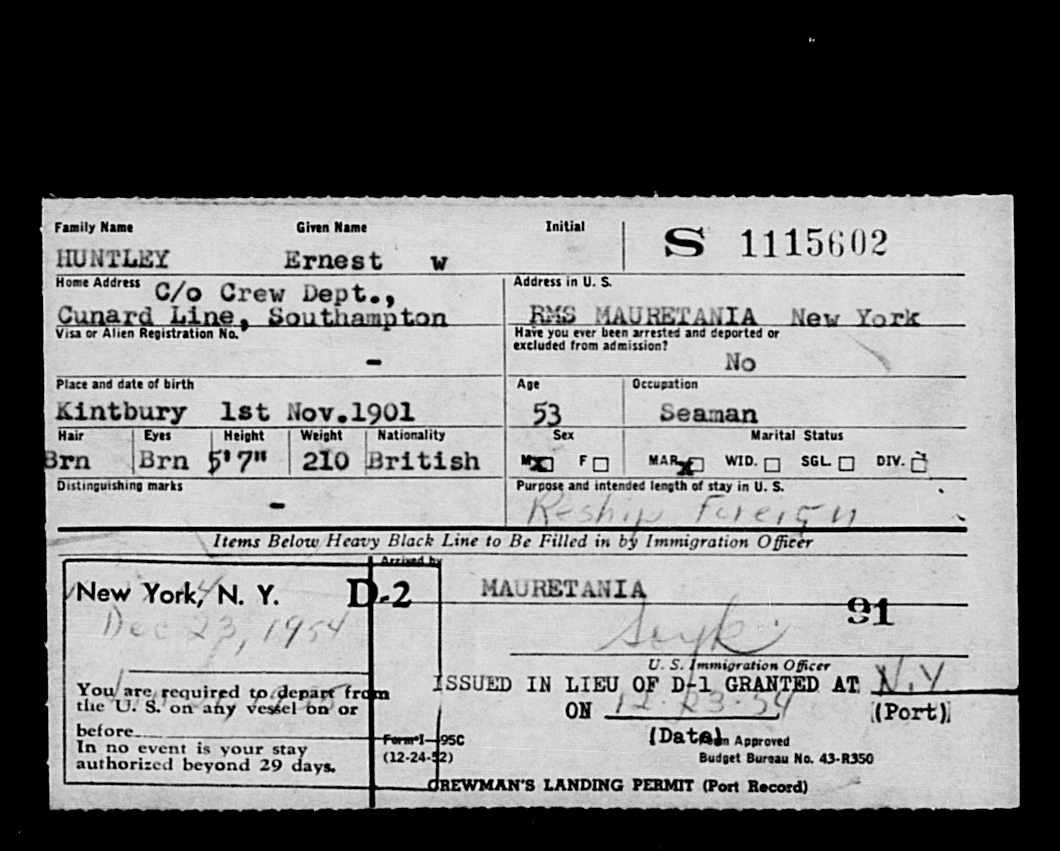 Family Name Given Name Initial
HUNTLEY Ernest W
S 1115602
Home Address C/o Crew Dept.,
Cunard Line, Southampton
Address in U. S.
RMS MAURETANIA New York
Visa or Alien Registration No.
-
Have you ever been arrested and deported or
excluded from admission?
No
Place and date of birth
Kintbury 1st Nov.1901
Age
53
Occupation
Seaman
Hair Eyes Height Weight Nationality
Brn Brn 5'7" 210 British
Sex
M F
Marital Status
MAR. WID. SGL. DIV.
Distinguishing marks
-
Purpose and intended length of stay in U. S.
Reship Foreign
Items Below Heavy Black Line to Be Filled in by Immigration Officer
New York, N. Y.
Dec 23, 1954
D-2
Arrived by
MAURETANIA
91
U. S. Immigration Officer
You are required to depart from
the U. S. on any vessel on or
before
In no event is your stay
authorized beyond 29 days.
ISSUED IN LIEU OF D-1 GRANTED AT N.Y
(Port)
ON 12-23-54
(Date)
Form I-95C
(12-24-52)
Form Approved
Budget Bureau No. 43-R350
CREWMAN'S LANDING PERMIT (Port Record)